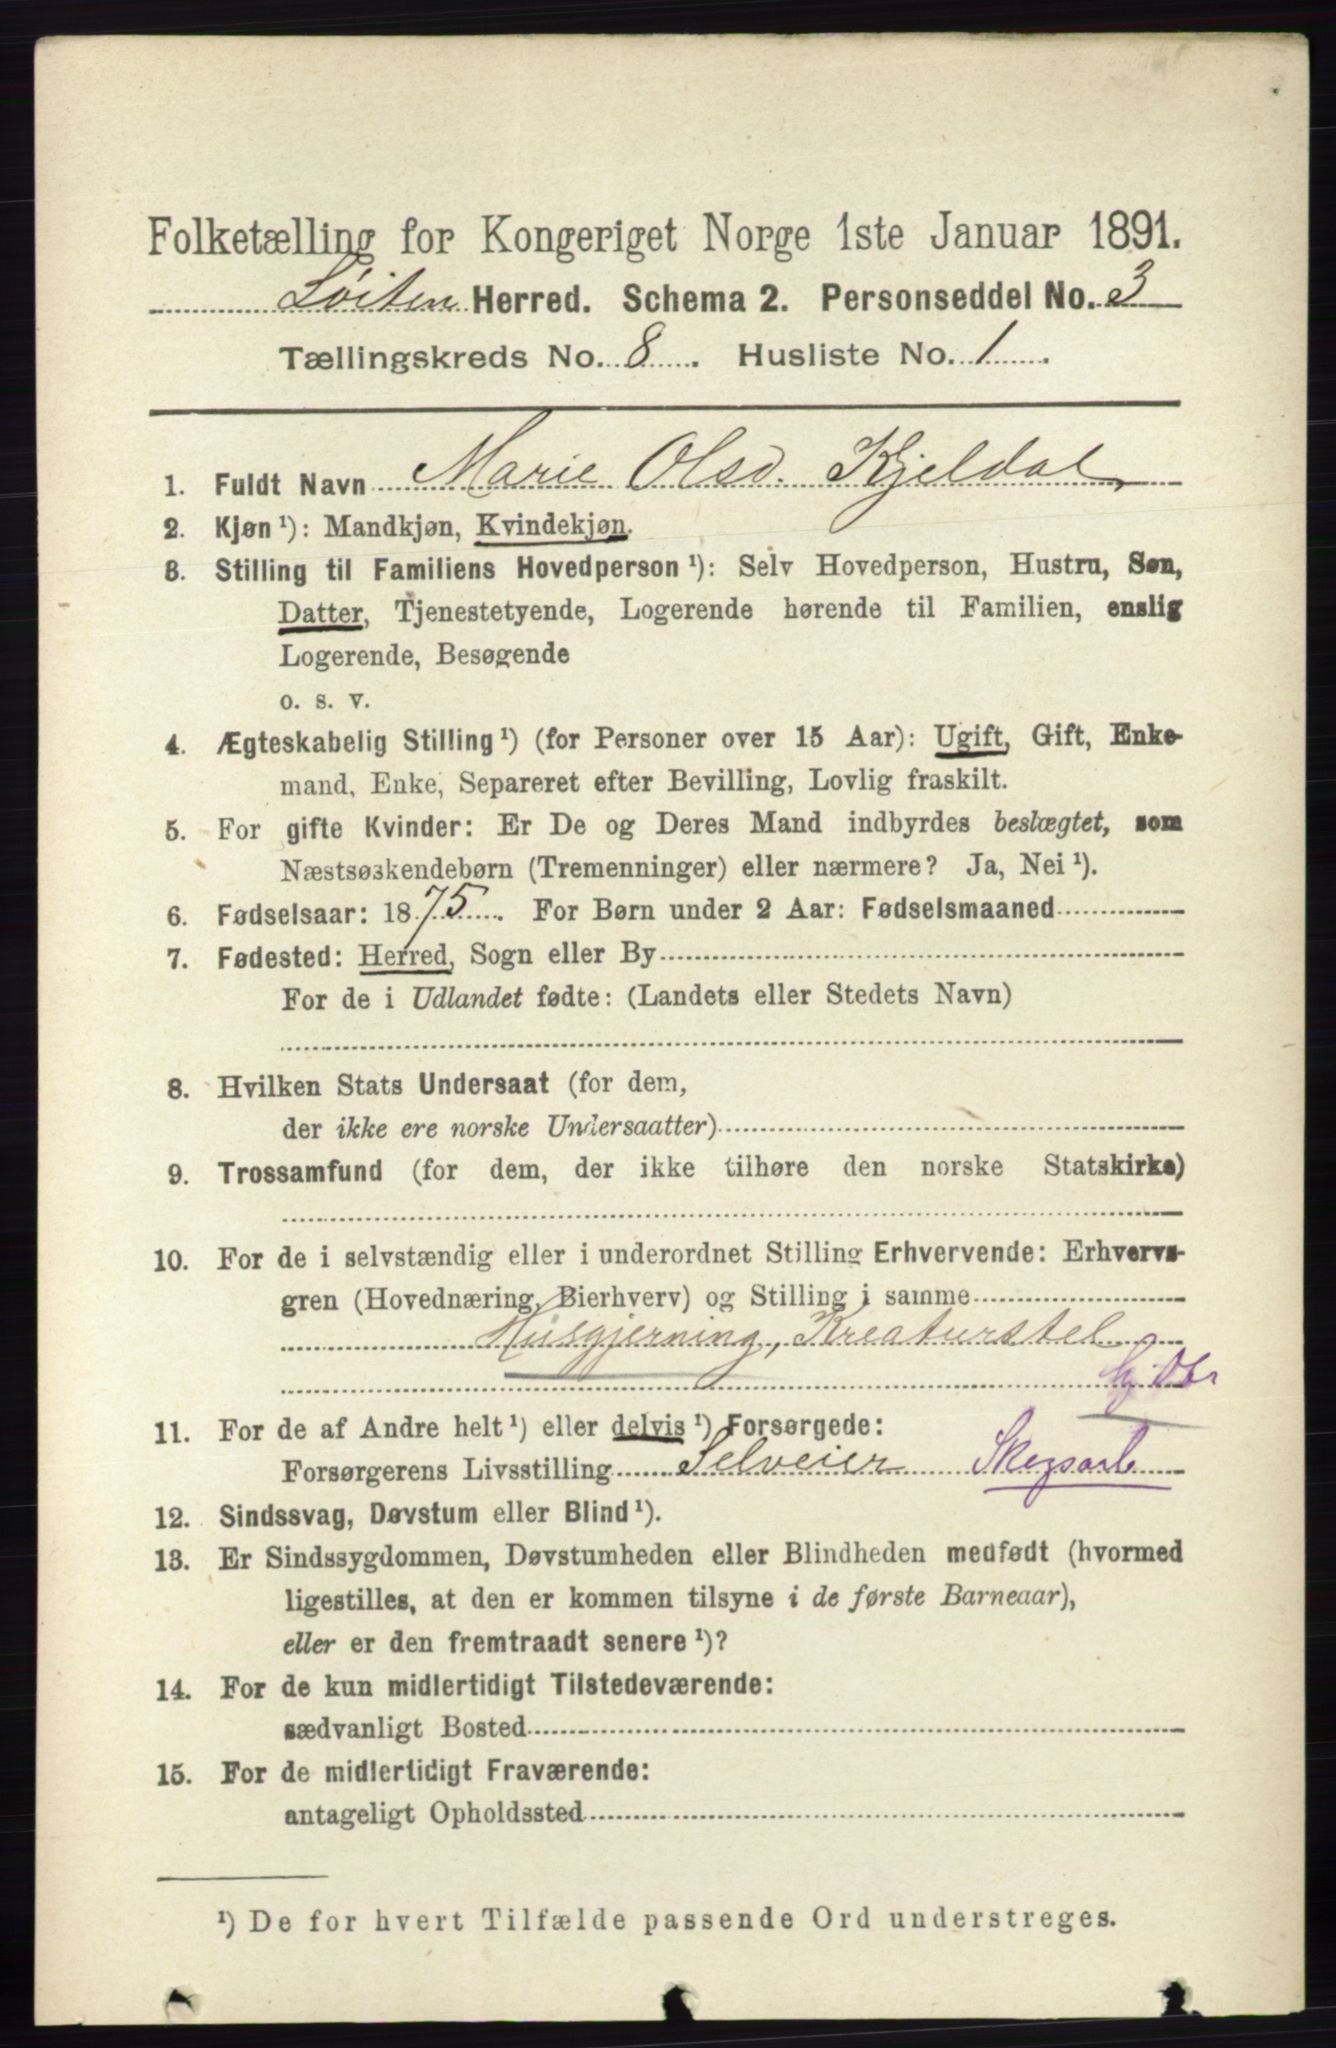 Folketælling for Kongeriget Norge 1ste Januar 1891.
Löiten Herred. Schema 2. Personseddel No. 3
Tællingskreds No. 8. Husliste No. 1.
1. Fuldt Navn Marie Olsd. Kjeldal,
2. Kjøn ¹): Mandkjøn, Kvindekjøn.
3. Stilling til Familiens Hovedperson ¹): Selv Hovedperson, Hustru, Søn,
Datter, Tjenestetyende, Logerende hørende til Familien, enslig
Logerende, Besøgende
o. s. v.
4. Ægteskabelig Stilling ¹) (for Personer over 15 Aar): Ugift, Gift, Enke-
mand, Enke, Separeret efter Bevilling, Lovlig fraskilt.
5. For gifte Kvinder: Er De og Deres Mand indbyrdes beslægtet, som
Næstsøskendebørn (Tremenninger) eller nærmere? Ja, Nei ¹).
6. Fødselsaar: 1875. For Børn under 2 Aar: Fødselsmaaned
7. Fødested: Herred, Sogn eller By
For de i Udlandet fødte: (Landets eller Stedets Navn)
8. Hvilken Stats Undersaat (for dem,
der ikke ere norske Undersaatter)
9. Trossamfund (for dem, der ikke tilhøre den norske Statskirke)
10. For de i selvstændig eller i underordnet Stilling Erhvervende: Erhvervs-
gren (Hovednæring, Bierhverv) og Stilling i samme
Husgjerning, Kreaturstel
11. For de af Andre helt ¹) eller delvis ¹) Forsørgede:
Forsørgerens Livsstilling Selveier
12. Sindssvag, Døvstum eller Blind ¹).
13. Er Sindssygdommen, Døvstumheden eller Blindheden medfødt (hvormed
ligestilles, at den er kommen tilsyne i de første Barneaar),
eller er den fremtraadt senere ¹)?
14. For de kun midlertidigt Tilstedeværende:
sædvanligt Bosted
15. For de midlertidigt Fraværende:
antageligt Opholdssted
¹) De for hvert Tilfælde passende Ord understreges.